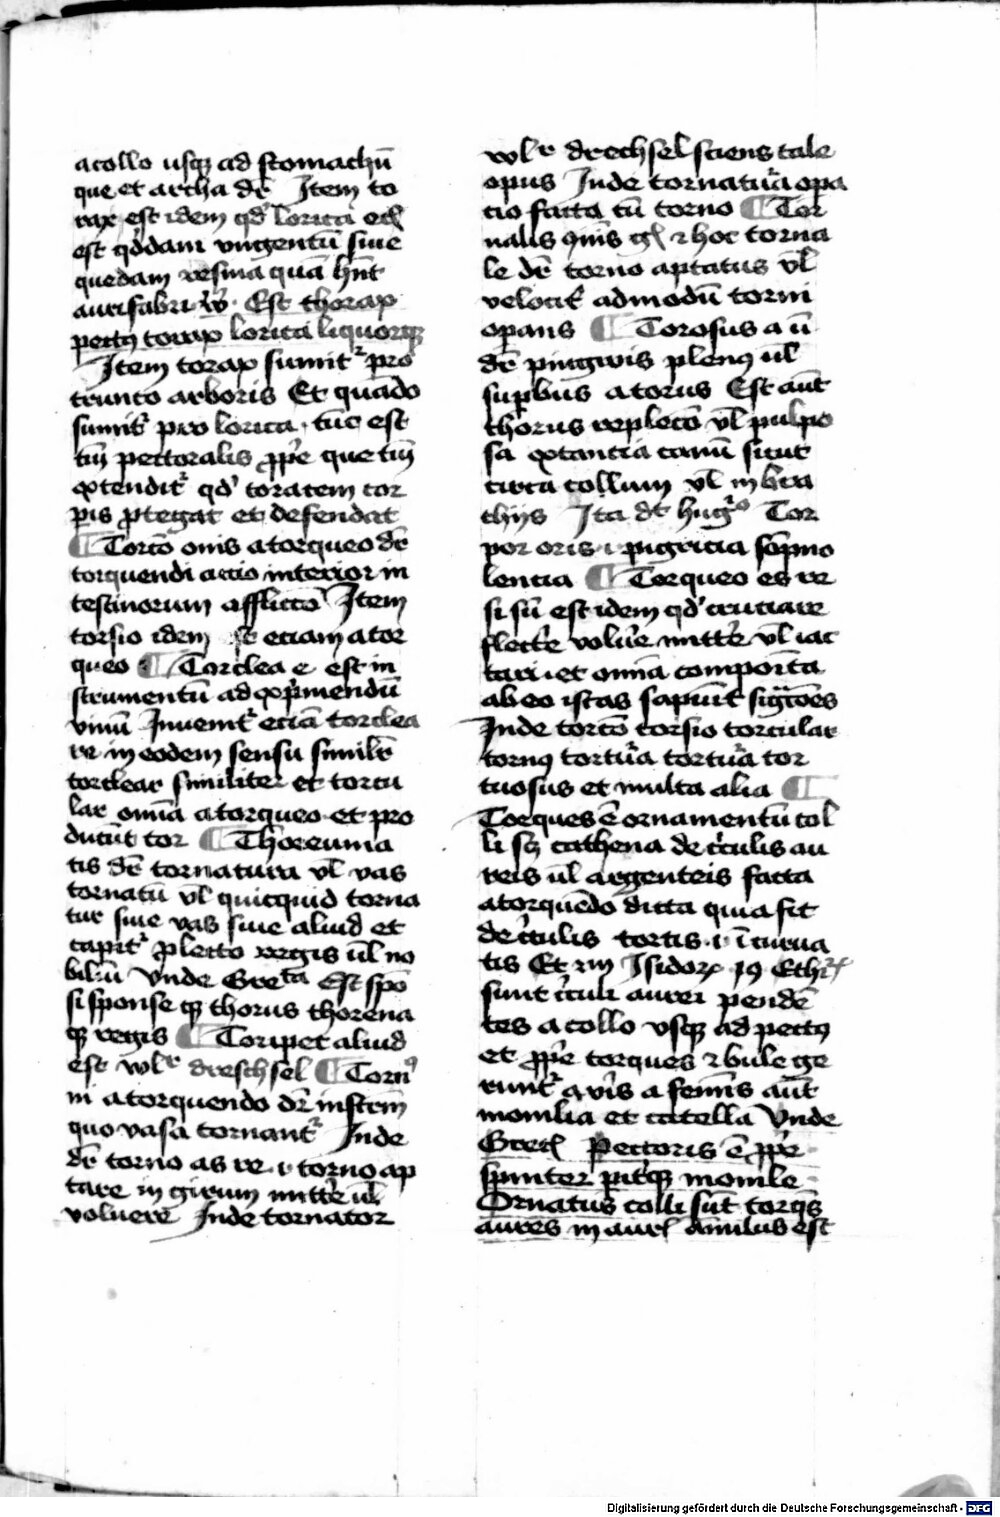 a collo usqꝫ ad stomachū
que et archa dr̄ Item to
rax est idem qd' lorica eciā
est qd'dam vngentū siue
quedam resina quā hn̄t
aurifabri v̄s Est thorax
pectꝰ torax lorica liquorqꝫ
Item torax sumit᷑ pro
trunco arboris Et quādo
sumit᷑ pro lorica tūc est
tm̄ pectoralis ꝓpe que tm̄
extendit᷑ qd' toracem cor
ꝑis ꝓtegat et defendat
¶ Torcō onis a torqueo dr̄
torquendi accio interior in
testinorum afflicto Item
torsio idem est eciam a tor
queo ¶ Torclea e est in
strumentū ad exp̄mendū
vinū Inuenit᷑ eciā torclea
re in eodem sensu similr̄
torclear similiter et torcu
lar omīa a torqueo et pro
ducūt tor ¶ Thoreuma
tis dr̄ tornatura vl̄ vas
tornatū vl̄ quicquid torna
tur siue vas siue aliud et
capit᷑ ꝓ lecto regis ul̄ no
biliū Vnde Grecꝰ Est spō
si sponse qꝫ thorus thorena
qꝫ regis ¶ Toripet aliud
est wlr drechsel ¶ Tornꝰ
ni a torquendo dr̄ instr̄m
quo vasa tornant᷑ Inde
dr̄ torno as re .i. torno ap
tare in girum mitt'e ul̄
voluere Inde tornator
wlr drechsel faciens tale
opus Inde tornatu᷑a opa
cio facta cū torno ¶ Tor
nalis oīs gl̄ ⁊ hoc torna
le dr̄ torno aptatus vl̄
velocit᷑ ad modū torni
opans ¶ Torosus a ū
dr̄ pingwis plenꝰ ul̄
supbus a torus Est aūt
thorus replecō vl̄ pulpo
sa extancia carnū sicut
circa collum vl̄ in bra
chijs Ita dt̄ hug᷑o Tor
por oris .i. pigricia sōpno
lencia ¶ Torqueo es re
si sū est idem qd' cruciare
flect'e volu'e mitt'e vl̄ iac
tari et omīa compoīta
ab eo istas sapiūt sig̅coēs
Inde torcō torsio torcular
tornꝰ tortu᷑a tortu᷑a tor
tuosus et multa alia ¶
Torques ē ornamentū col
li scꝫ cathena de c'culis au
reis ul̄ argenteis facta
a torquēdo dicta quia fit
de c'culis tortis .i. īcurua
tis Et ut Isidorꝰ 19 Ethi᷑
sunt c'culi aurei pendē
tes a collo vsqꝫ ad pectꝰ
et ꝓpe torques ⁊ bule ge
runt᷑ a vīs a femīs aūt
monilia et catella Vnde
Grecꝰ Pectoris ē ꝓpe
spinter pit'qꝫ monile
Ornatus colli sūt torqs
aures in aurꝰ anulus est